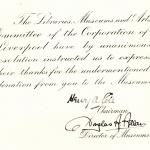 The Libraries, Museums and Arts
Committee of the Corporation of
Liverpool have by unanimous
resolution instructed us to express
their thanks for the undermentioned
donation from you to the Museums
Chairman
Director of Museums